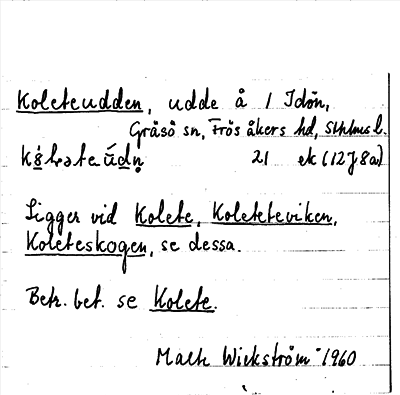 Koleteudden, udde å / Idön,
Gräsö sn, Frösåkers hd, Sthlms l.
21 ek (12J8a)
Ligger vid Kolete, Koleteviken,
Koleteskogen, se dessa.
Betr. bet. se Kolete.
Mats Wickström 1960